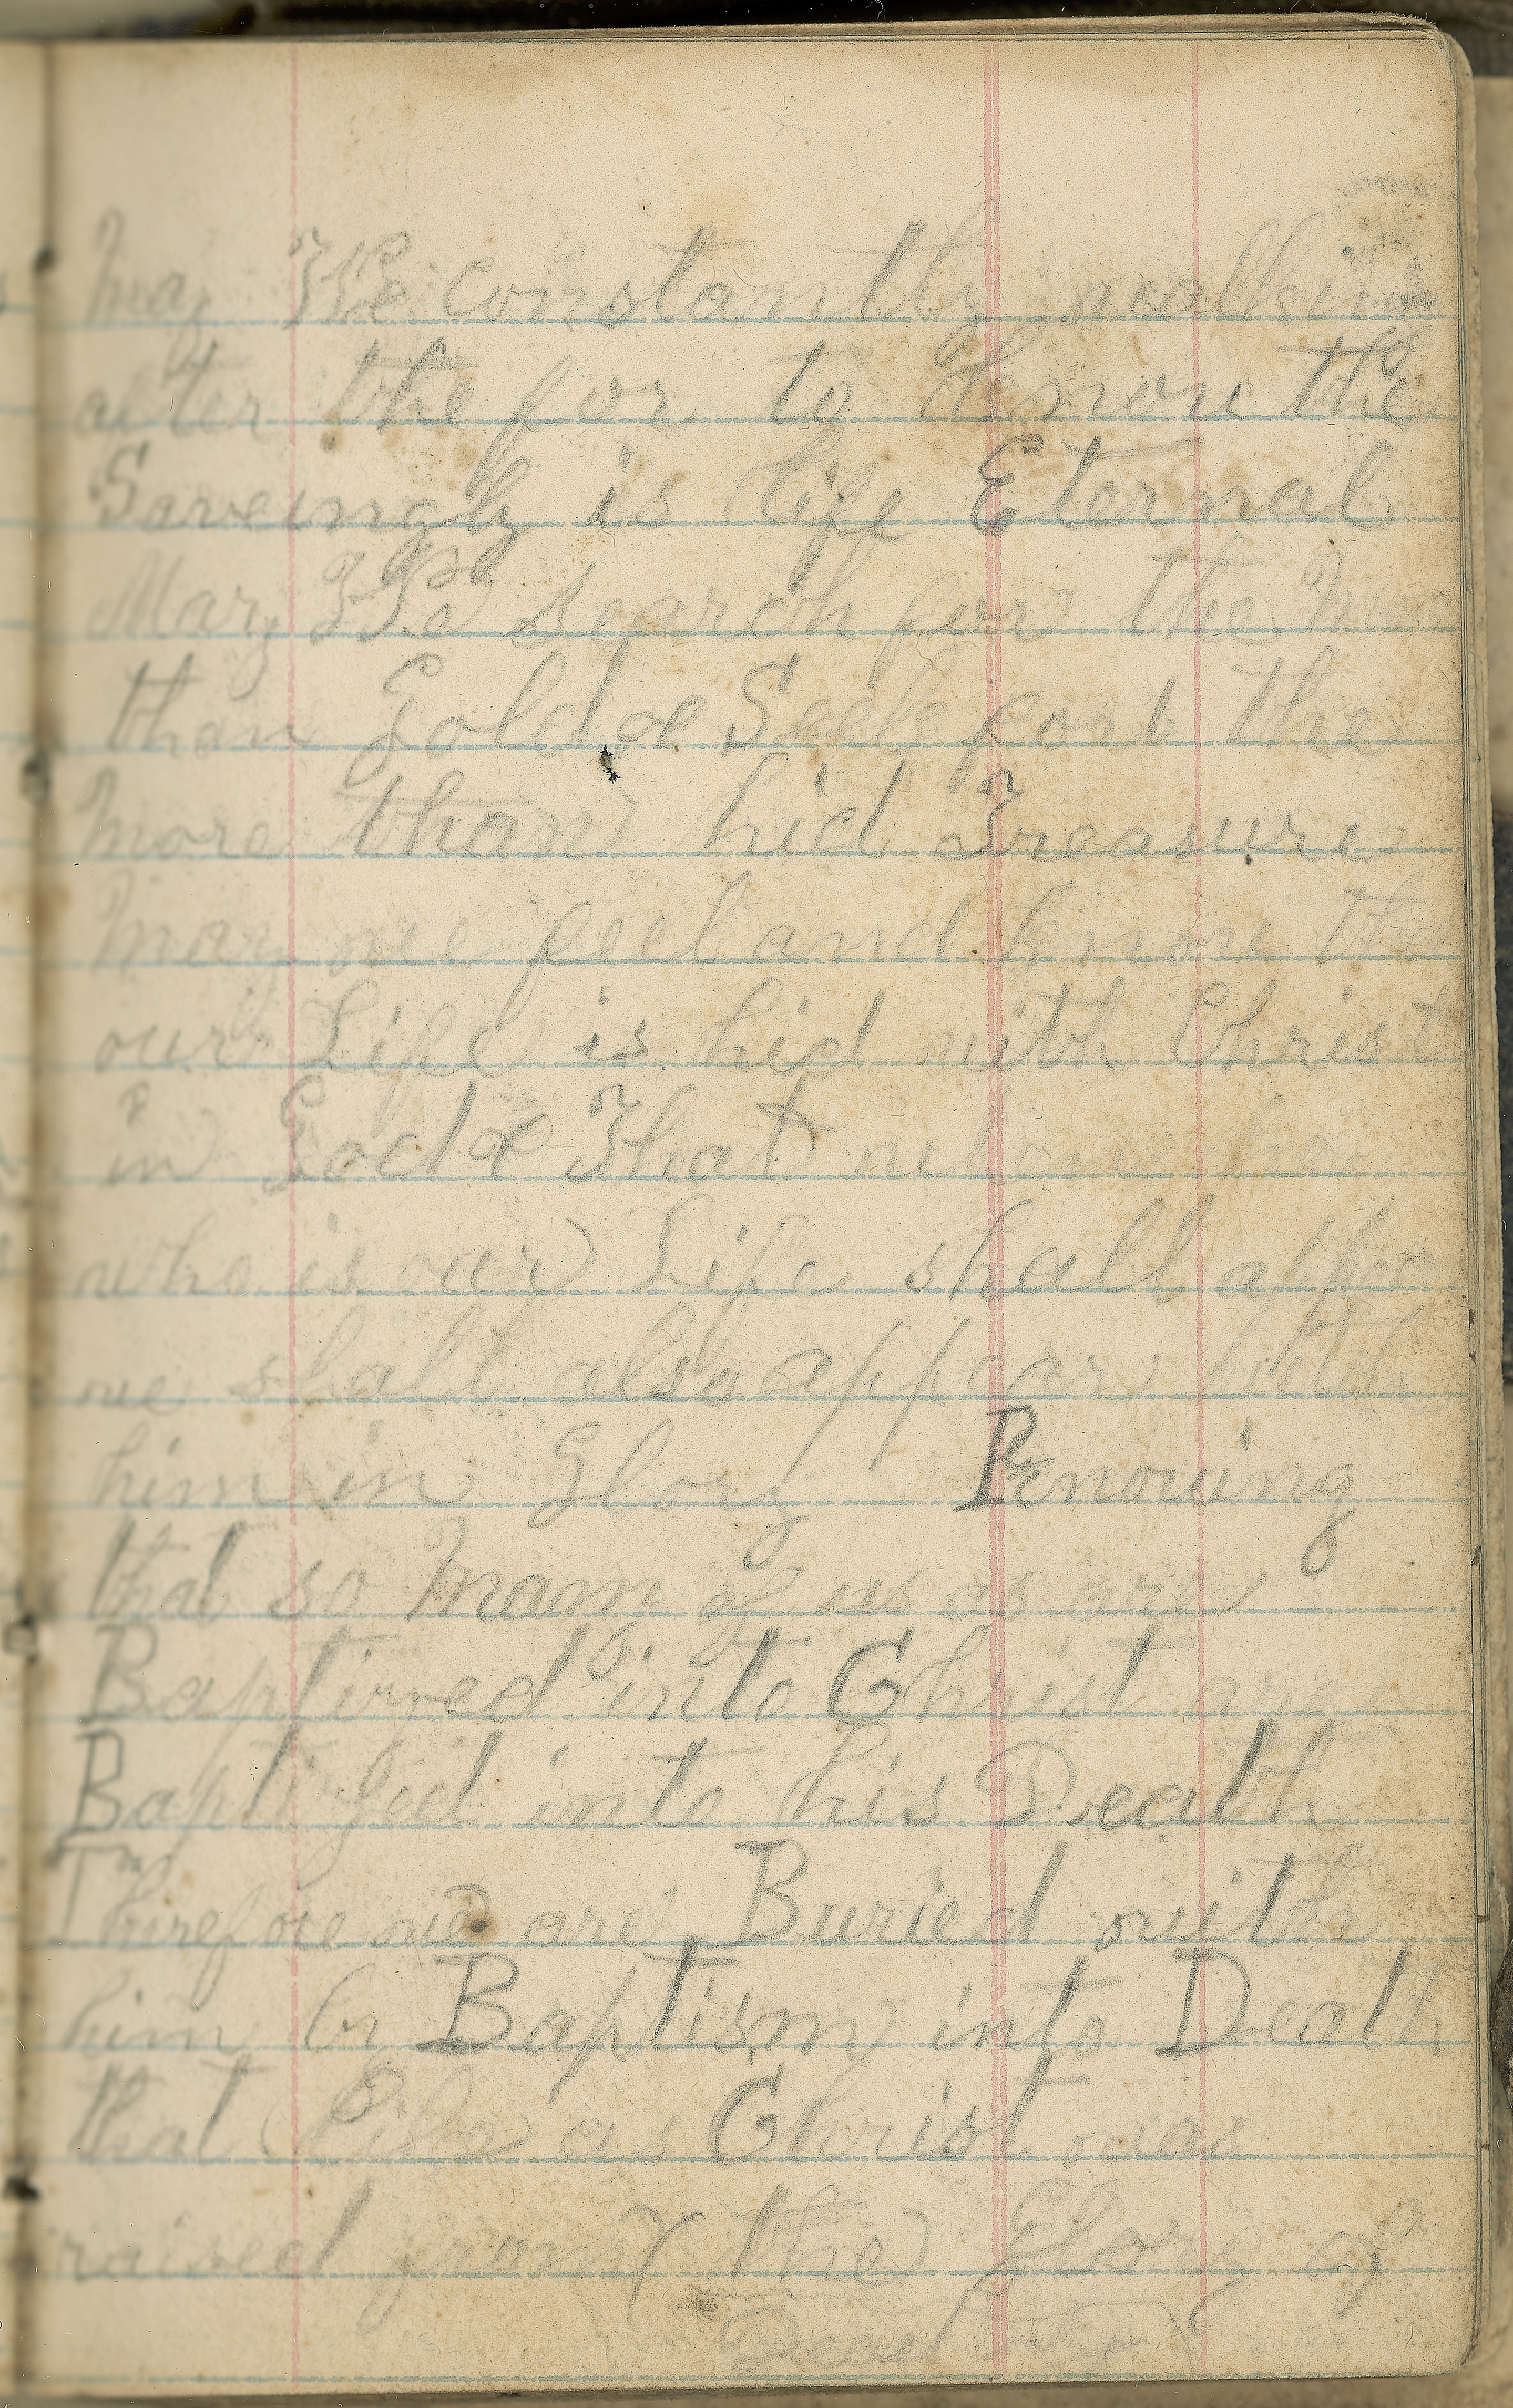 may We Constantly walking
after the for to know the
Saveingly is life Eternal
May We search for the more
than Gold & Seek for the
more than hid Treasure
may we feel and know tha
our Life is hid with Christ
in God & That when
who is our Life shall
we shall also appear with
him in Glory Knowing
that so many of us as are
Baptized into Christ are
Baptized into his Death
Therefore we are Buried with
him by Baptism into Death
that like as Christ was
raised from the Glory of
Dead the